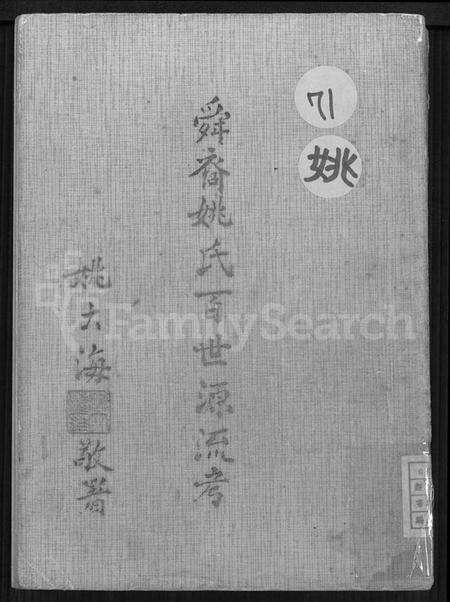 71
姚
舜裔姚氏百世源流考
姚大海
敬署
FamilySearch